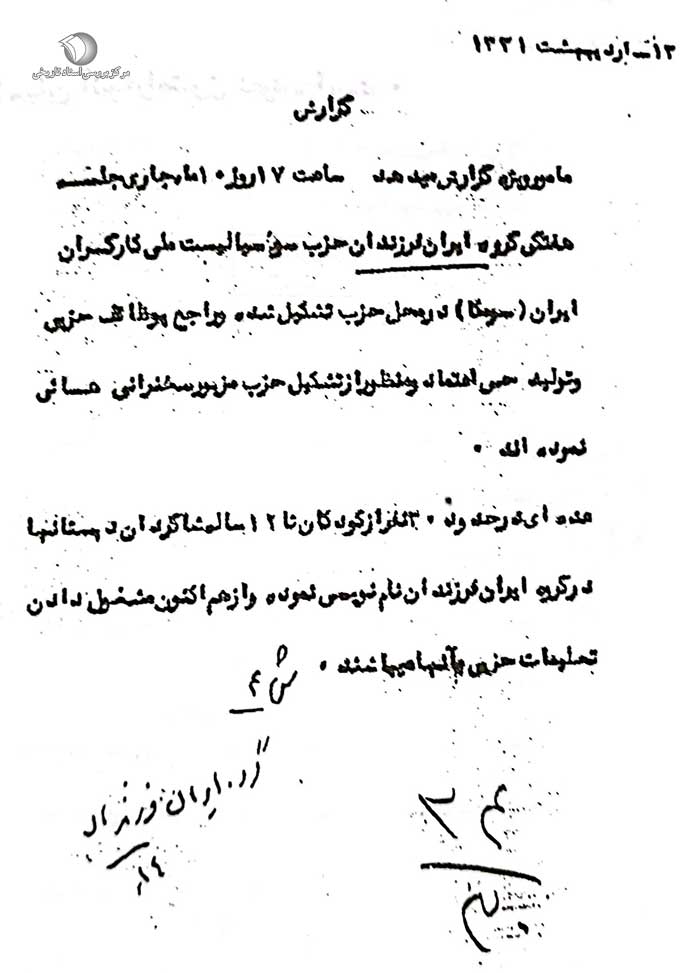 مرکز بررسی اسناد تاریخی
۱۲ اردیبهشت ۱۳۳۱
گزارش
مامور ویژه گزارش میدهد ساعت ۱۷ روز ۱۰ ماه جاری جلسه
هفتگی گروه ایران فرزندان حزب سوسیالیست ملی کارگران
ایران (سومکا) در محل حزب تشکیل شده و راجع بوظائف حزبی
و تولید حس اعتماد و منظور از تشکیل حزب مزبور سخنرانی هسائی
نموده اند ۰
عده ای در حدود ۳۰ نفر از کودکان تا ۱۲ ساله شاگردان دبستانها
در گروه ایران فرزندان نام نویسی نموده و از هم اکنون مشغول دادن
تعلیمات حزبی بآنها میباشند ۰
ش ۴
گروه ایران فرزندان
۱۴